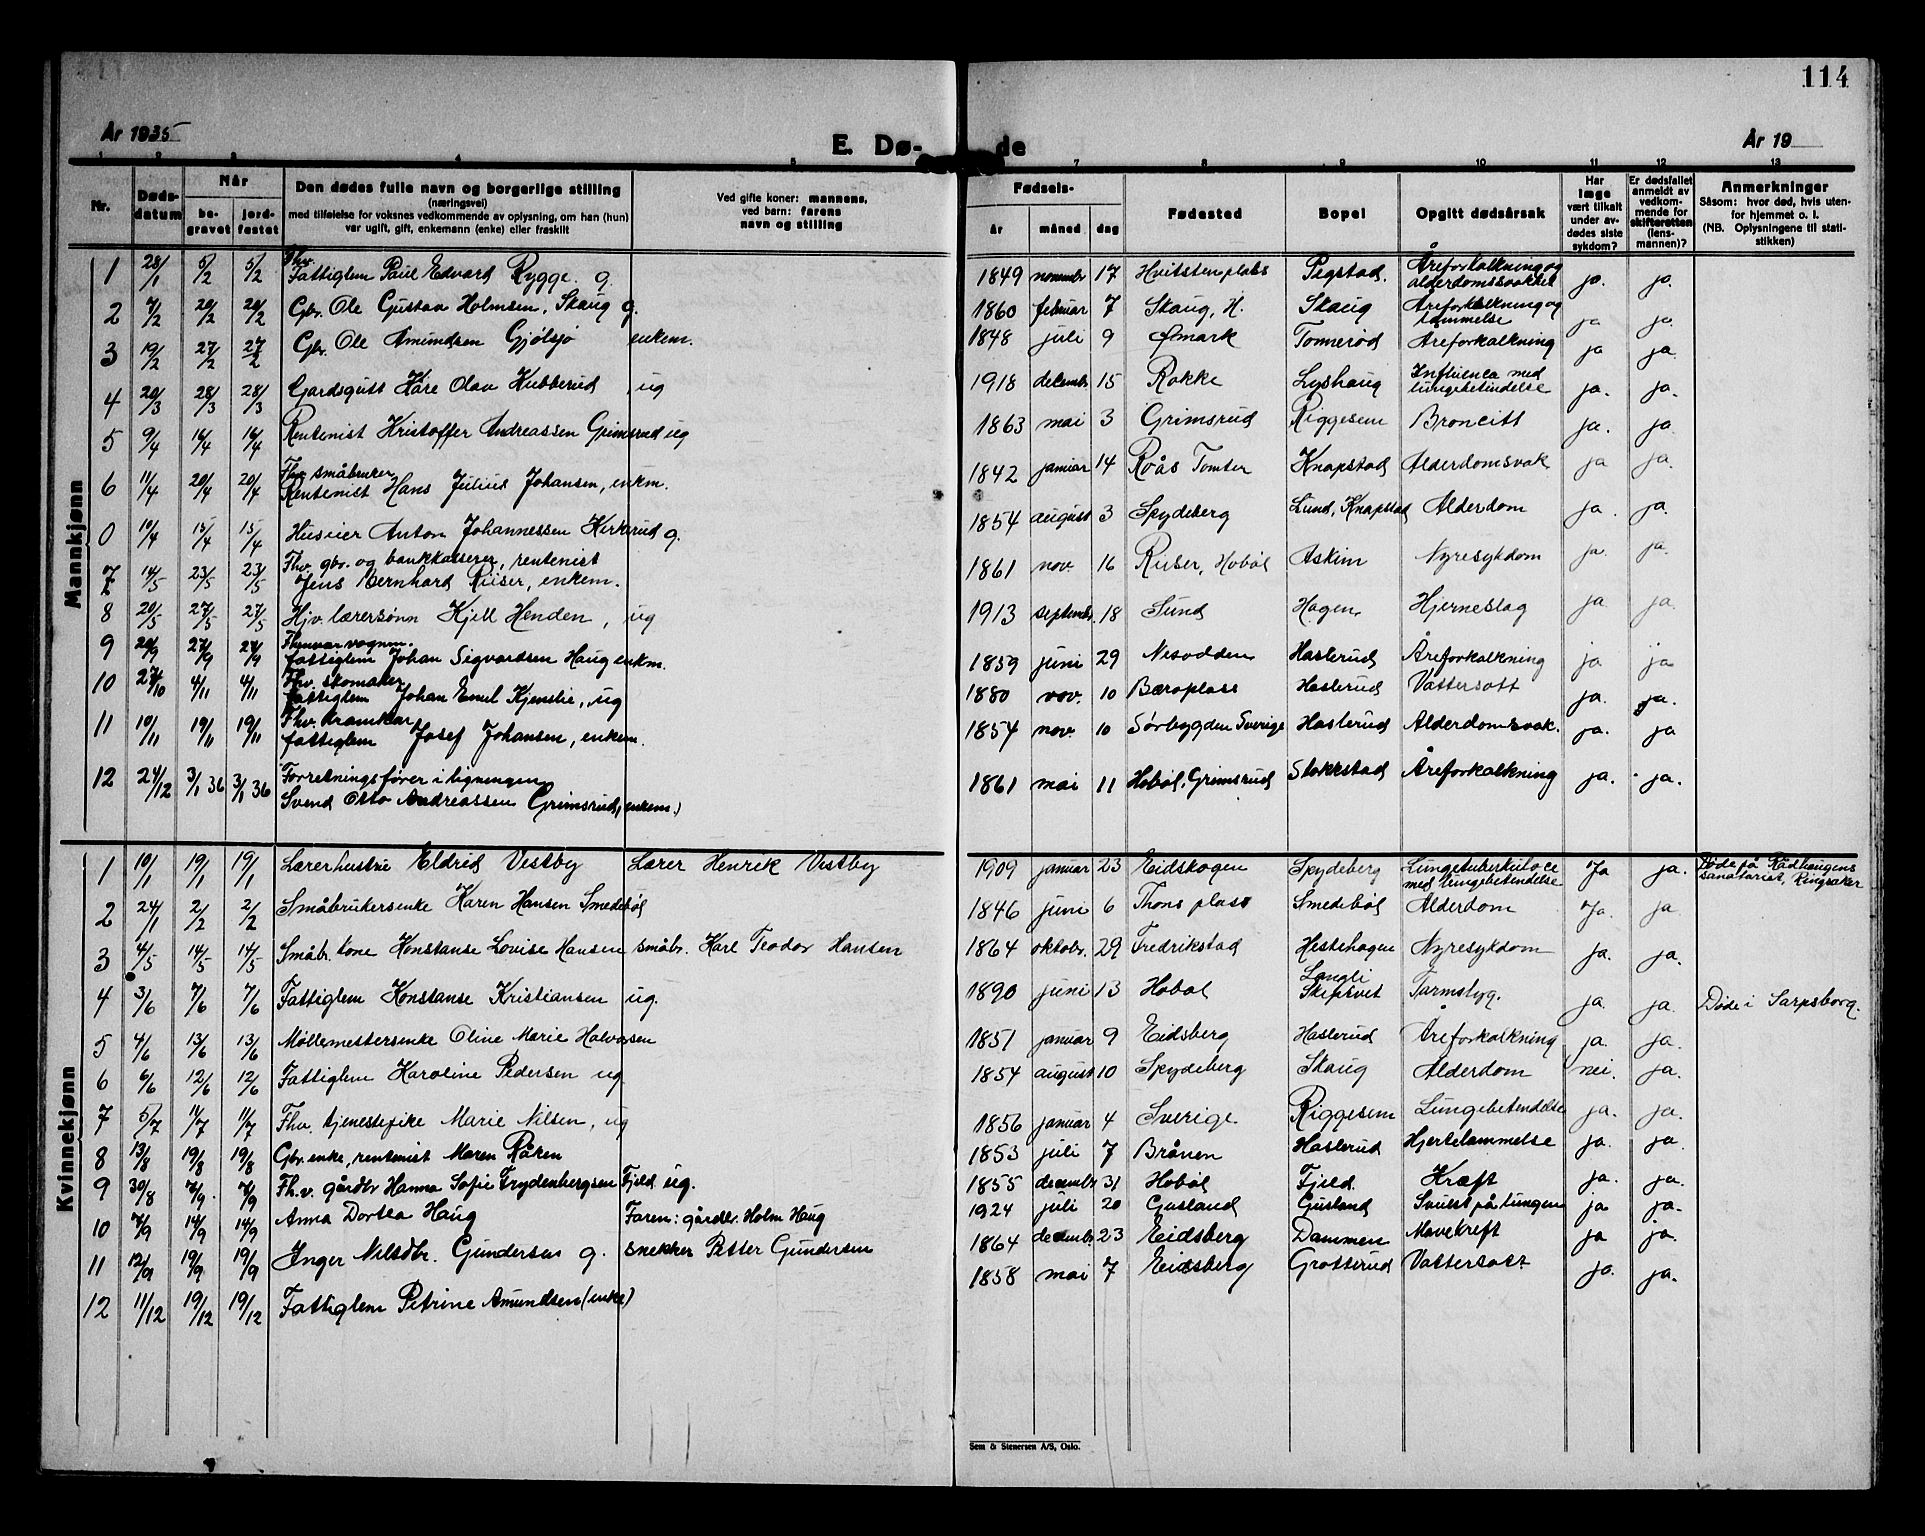 114
År 1935
E. Dø-
de
År 19
1 2 3 4 5 7 8 9 10 11 12 13
Nr.
Døds-
datum
Når
be-
gravet
jord-
festet
Den dødes fulle navn og borgerlige stilling
(næringsvei)
med tilføielse for voksnes vedkommende av oplysning, om han (hun)
var ugift, gift, enkemann (enke) eller fraskilt
Ved gifte koner: mannens,
ved barn: farens
navn og stilling
Fødsels-
år
måned
dag
Fødested
Bopel
Opgitt dødsårsak
Har
læge
vært tilkalt
under av-
dødes siste
sykdom?
Er dødsfallet
anmeldt av
vedkom-
mende for
skifteretten
(lens-
mannen)?
Anmerkninger
Såsom: hvor død, hvis uten-
for hjemmet o. l.
(NB. Oplysningene til stati-
stikken)
Mannkjønn
1 28/1 5/2 5/2 Fhv. Fattiglem Paul Edvard Rygge. g. 1849 novembr 17 Hvitsten plads Pigstad. Åreforkalkning og alderdomssvakhet ja. ja.
2 7/2 20/2 20/2 Gbr. Ole Gustav Holmsen, Skaug g. 1860 februar 7 Skaug, H. Skaug Åreforkalkning og lammelse ja ja.
3 19/2 27/2 27/2 Gbr. Ole Amundsen Gjølsjø enkem. 1848 juli 9 Ømark Tonnerød Åreforkalkning ja ja.
4 20/3 28/3 28/3 Gardsgutt Kåre Olav Kubberud ug 1918 decembr 15 Rakke Lyshaug Influenca med lungebetendelse ja. ja.
5 9/4 16/4 16/4 Rentenist Kristoffer Andreassen Grimsrud ug 1863 mai 3 Grimsrud Riggesem Broncitt ja. ja
6 11/4 20/4 20/4 Fhv. småbruker Rentenist Hans Julius Johansen, enkm. 1842 januar 14 Roås Tomter Knapstad Alderdomsvak ja ja.
0 10/4 15/4 15/4 Huseier Anton Johannessen Kirkerud g. 1854 august 3 Spydeberg Lund, Knapstad Alderdom ja. ja.
7 14/5 23/5 23/5 Fhv. gbr. og bankkasserer, rentenist Jens Bernhard Ruser, enkem. 1861 nov 16 Ruser, Hobøl Askim Nyresykdom ja. ja.
8 20/5 27/5 27/5 Hjv. lærersønn Kjell Henden, ug 1913 septembr. 18 Sund Hagen Hjerneslag ja ja.
9 20/9 27/9 27/9 fattiglem Johan Sigvardsen Haug enkm. 1859 juni 29 Nesodden Haslerud Åreforkalkning ja ja
10 27/10 4/11 4/11 Fhv. skomaker fattiglem Johan Emil Kjenslie, ug 1880 nov. 10 Bæroplass Haslerud Vattersott ja. ja.
11 10/11 19/11 19/11 Fhv. kramkar fattiglem Josef Johansen, enkem. 1854 nov. 10 Sørbygden Sverige Haslerud Alderdomsvak. ja. ja
12 24/12 3/1 36 3/1 36 Forretningsfører i ligningen Svend Otto Andreassen Grimsrud, enkem.) 1861 mai 11 Hobøl, Grimsrud Stokkstad Åreforkalkning ja. ja.
Kvinnekjønn
1 10/1 19/1 19/1 Lærerhustru Eldrid Vestby Lærer Henrik Vestby 1909 januar 23 Eidskogen Spydeberg Lungetuberkulose med lungebetendelse Ja ja. Døde på Rådhaugens sanatoriet, Ringsaker
2 24/1 2/2 2/2 Småbrukersenke Karen Hansen Smedebøl 1846 juni 6 Thons plass Smedebøl Alderdom Ja. ja
3 4/5 14/5 14/5 Småbr. kone Konstanse Lovise Hansen småbr. Karl Teodor Hansen 1864 oktobr. 29 Fredrikstad Hestehagen Nyresykdom ja. ja.
4 3/6 7/6 7/6 Fattiglem Konstanse Kristiansen ug. 1890 juni 13 Hobøl Langli Skiptvet Tarmslyg. ja. ja. Døde i Sarpsborg.
5 4/6 13/6 13/6 Møllemestersenke Oline Marie Halvorsen 1851 januar 9 Eidsberg Haslerud Åreforkalkning ja. ja.
6 6/6 12/6 12/6 Fattiglem Karoline Pedersen ug 1854 august 10 Spydeberg Skaug Alderdom nei. ja.
7 5/7 11/7 11/7 Fhv. tjenestepike Marie Nilsen, ug 1856 januar 4 Sverige Riggesem Lungebetendelse ja. ja.
8 13/8 19/8 19/8 Gbr. enke, rentenist Maren Råken 1853 juli 7 Brånen Haslerud Hjertelammelse ja. ja.
9 30/8 7/9. 7/9 Fh.v. gårdbr Hanna Sofie Frydenbergsen Fjeld ug. 1855 decembr 31 Hobøl Fjeld. Kræft ja. ja.
10 7/9 14/9 14/9 Anna Dortea Haug Faren: gårdbr. Holm Haug 1924 juli 20 Gusland Gusland Svulst på lungen ja ja.
11 12/9 19/9 19/9 Inger Nilsdtr. Gundersen g. snekker Petter Gundersen 1864 decembr 23 Eidsberg Dammen Mavekreft ja ja.
12 11/12 19/12 19/12 Fattiglem Petrine Amundsen (enke) 1858 mai 7 Eidsberg Grotterud Vattersott ja. ja.
Sem & Stenersen A/S, Oslo.